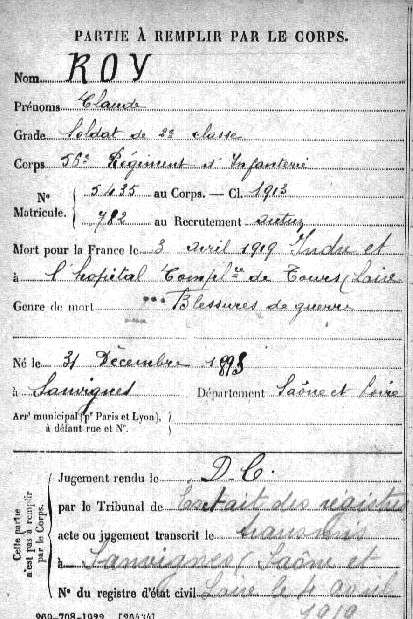 PARTIE À REMPLIR PAR LE CORPS.
Nom ROY
Prénoms Claude
Grade Soldat de 2e classe
Corps 56e Régiment d'Infanterie
N° Matricule. 5435 au Corps. — Cl. 1913
782 au Recrutement Autun
Mort pour la France le 3 avril 1919 Indre et
à l'hopital Complre de Tours (Loire
Genre de mort Blessures de guerre
Né le 31 Décembre 1893
à Sanvignes Département Saône et Loire
Arrt municipal (pr Paris et Lyon),
à défaut rue et N°.
Cette partie n'est pas à remplir par le Corps.
Jugement rendu le D.C.
par le Tribunal de Extrait des registres
acte ou jugement transcrit le transmis
à Sanvignes, Saône et
N° du registre d'état civil Loire le avril
1919